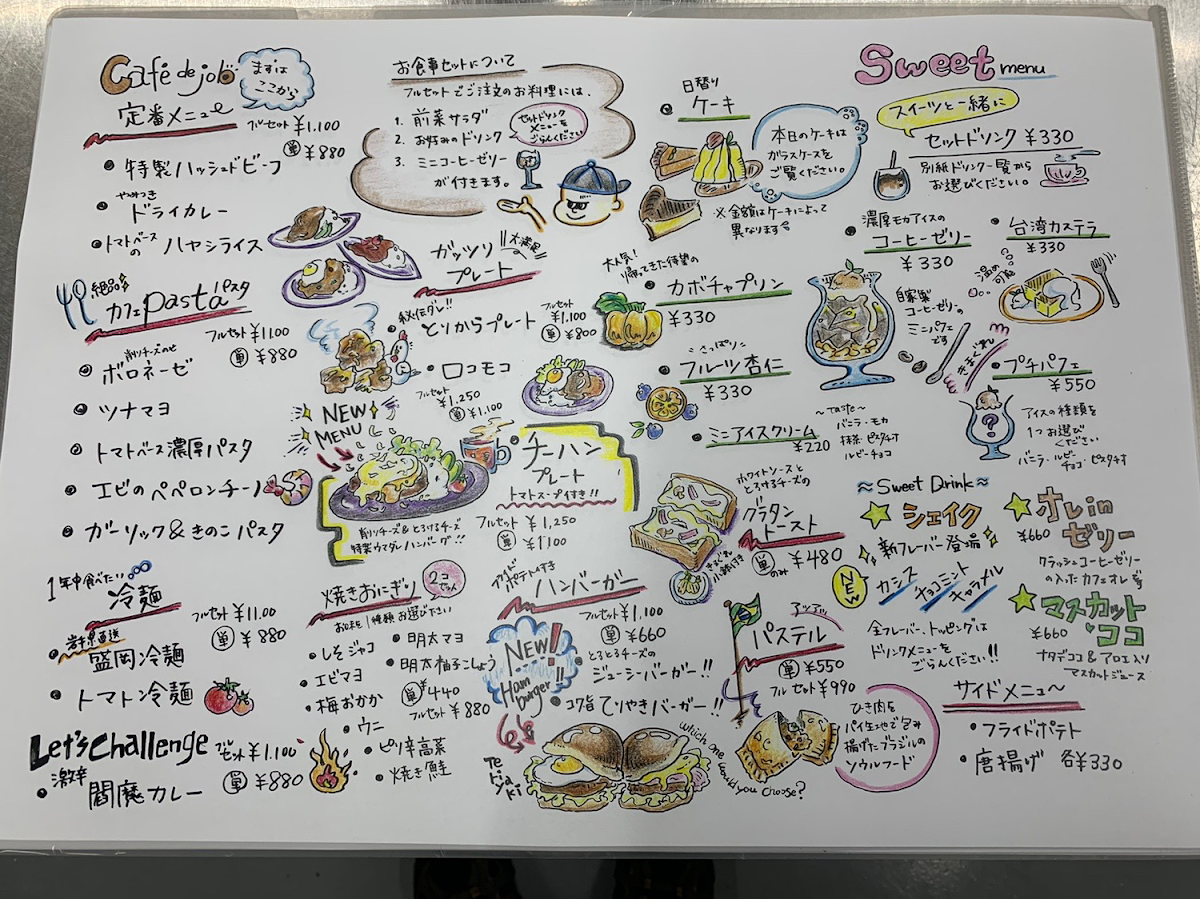 Café de job
まずは
ここから
定番メニュー
フルセット ¥1,100
単 ¥880
特製ハッシュドビーフ
やみつき
ドライカレー
トマトベースの ハヤシライス
絶品
カフェpastaパスタ
フルセット ¥11.00
単 ¥880
削りチーズのせ
ボロネーゼ
ツナマヨ
トマトベース濃厚パスタ
エビのペペロンチーノ
ガーリック&きのこパスタ
1年中食べたい
冷麺
フルセット ¥11.00
単 ¥880
岩手県直送
盛岡冷麺
トマトン冷麺
Let's challenge
フルセット ¥1,100
単 ¥880
激辛
閻魔カレー
お食事セットについて
フルセットでご注文のお料理には、
1. 前菜サラダ
2. お好みのドリンク
3. ミニコーヒーゼリー
が付きます。
セットドリンク
メニューを
ごらんください
ガッツリ
プレート
大満足
フルセット
¥1,100
単 ¥800
秘伝ダレ!!
とりからプレート
ロコモコ
フルセット
¥1,250
単 ¥1,100
NEW
MENU
チーハン
プレート
トマトスープ付き!!
削りチーズ&とろけるチーズ
特製ウマダレハンバーグ!!
フルセット ¥1,250
単 ¥1100
焼きおにぎり
2コ
お味を1種類お選び下さい
しそジャコ
エビマヨ
梅おかか
ウニ
ピリ辛高菜
焼き鮭
明太マヨ
明太柚子こしょう
単 ¥440
フルセット ¥880
フライド
ポテト付き
ハンバーガー
フルセット ¥1,100
単 ¥660
NEW!!
Ham
burger
とろとろチーズの
ジューシーバーガー!!
コク旨 てりやきバーガー!!
Te
ri
ya
ki
which one would you choose?
Sweet menu
日替り
ケーキ
本日のケーキは
ガラスケースを
ご覧ください。
※金額はケーキによって
異なります
スイーツと一緒に
セットドリンク ¥330
別紙ドリンク一覧から
お選びください。
大人気!
帰ってきた待望の
カボチャプリン
¥330
さっぱり
フルーツ杏仁
¥330
ミニアイスクリーム
¥220
~taste~
バニラ・モカ
抹茶・ピスタチオ
ルビーチョコ
濃厚モカアイスの
コーヒーゼリー
¥330
自家製
コーヒーゼリーの
ミニパフェ
です
台湾カステラ
¥330
温め
可能
きまぐれ
プチパフェ
¥550
アイスの種類を
1つお選び
ください
バニラ・ルビー
チョコ・ピスタチオ
ホワイトソースと
とろけるチーズの
グラタン
トースト
単のみ ¥480
きまぐれ
小鉢付き
アツアツ
パステル
単 ¥550
フルセット ¥990
ひき肉を
パイ生地で包み
揚げたブラジルの
ソウルフード
≈Sweet Drink≈
シェイク
新フレーバー登場
NEW
カシス
チョコミント
キャラメル
全フレーバー、トッピングは
ドリンクメニューを
ごらんください!!
オレin
ゼリー
¥660
クラッシュコーヒーゼリー
の入ったカフェオレ
マスカット
ココ
¥660
ナタデココ&アロエ入り
マスカットジュース
サイドメニュー
フライドポテト
唐揚げ 各¥330